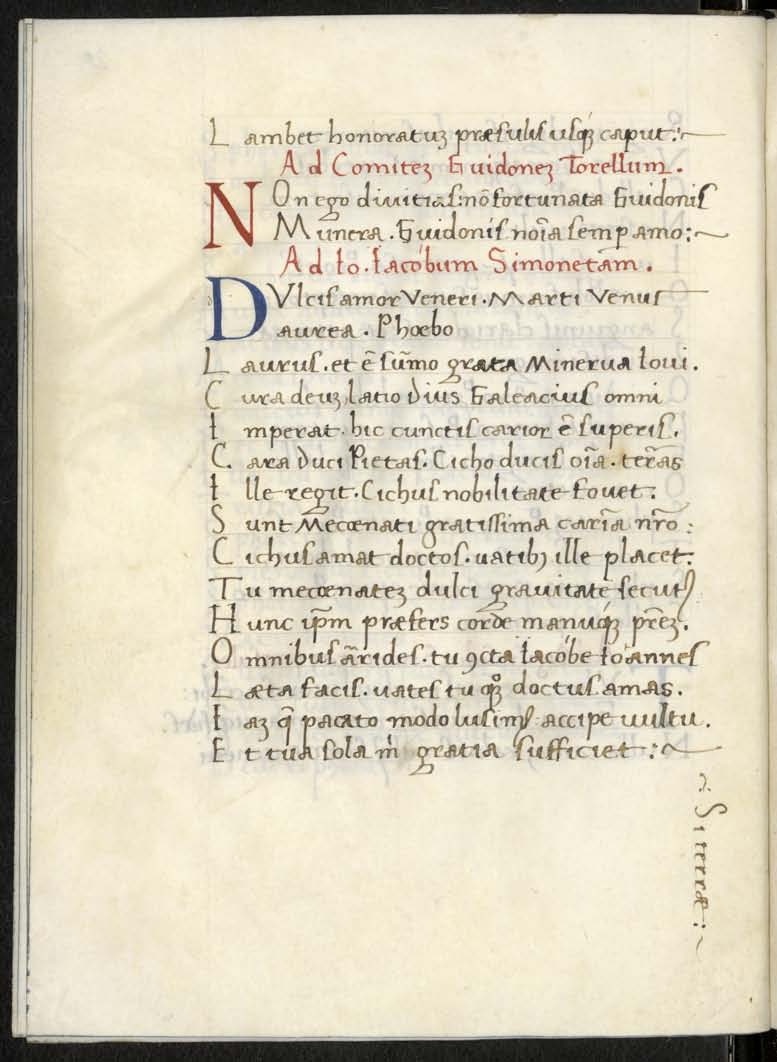 L ambet honoratuȝ præsulis usqȝ́ caput:~
Ad Comiteȝ Guidoneȝ Torellum.
NOn ego diuitias: nō fortunata Guidonis
Munera. Guidonis noīa semp amo:~
Ad Io. Iacóbum Simonetam.
DVlcis amor Veneri. Marti Venus
aurea. Phœbo
L aurus. et ē sūmo grata Minerua Ioui.
C ura deuȝ, latio diuus Galeacius omni
I mperat. hic cunctis carior ē superis.
C ara duci Pietas. Cicho ducis oīa. terras
I lle regit. Cichus nobilitate fouet.
S unt Mecœnati gratissima carīa nr̄o:
C ichus amat doctos. uatibȝ ille placet.
T u mecœnateȝ dulci grauitate secutꝰ
H unc ip̄m præfers corde manuqȝ́ pr̄eȝ.
O mnibus ārides. tu ꝯcta Iacóbe Ioannes
L æta facis. uates tu qȝͦ doctus amas.
I aȝ q̄ pacato modo lusimꝰ accipe uultu.
E t tua sola m̄ gratia sufficiet:~
Si terræ:~